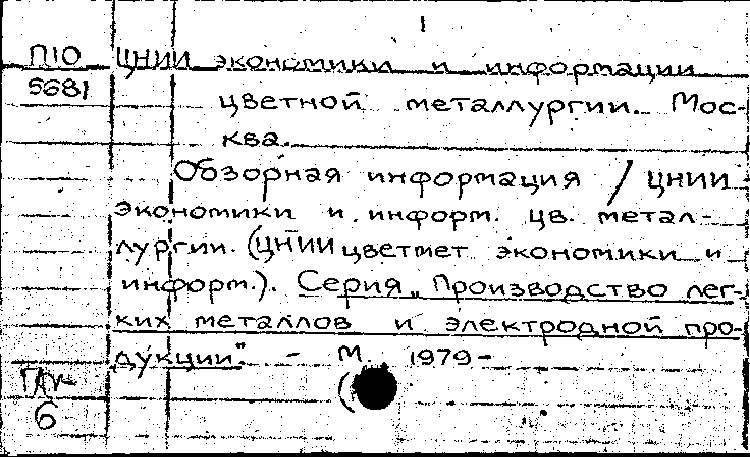 1
П10 ЦНИИ экономики и информации
5681 цветной металлургии. Мос-
ква.
Обзорная информация / ЦНИИ
экономики и информ. цв. метал-
лургии. (ЦНИИцветмет экономики и
информ.). Серия „Производство лег-
ких металлов и электродной про-
дукции". - М. 1979-
(
6